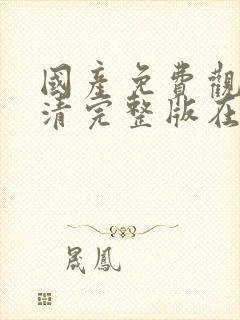 國產免費觀
清完整版在
晟鳳